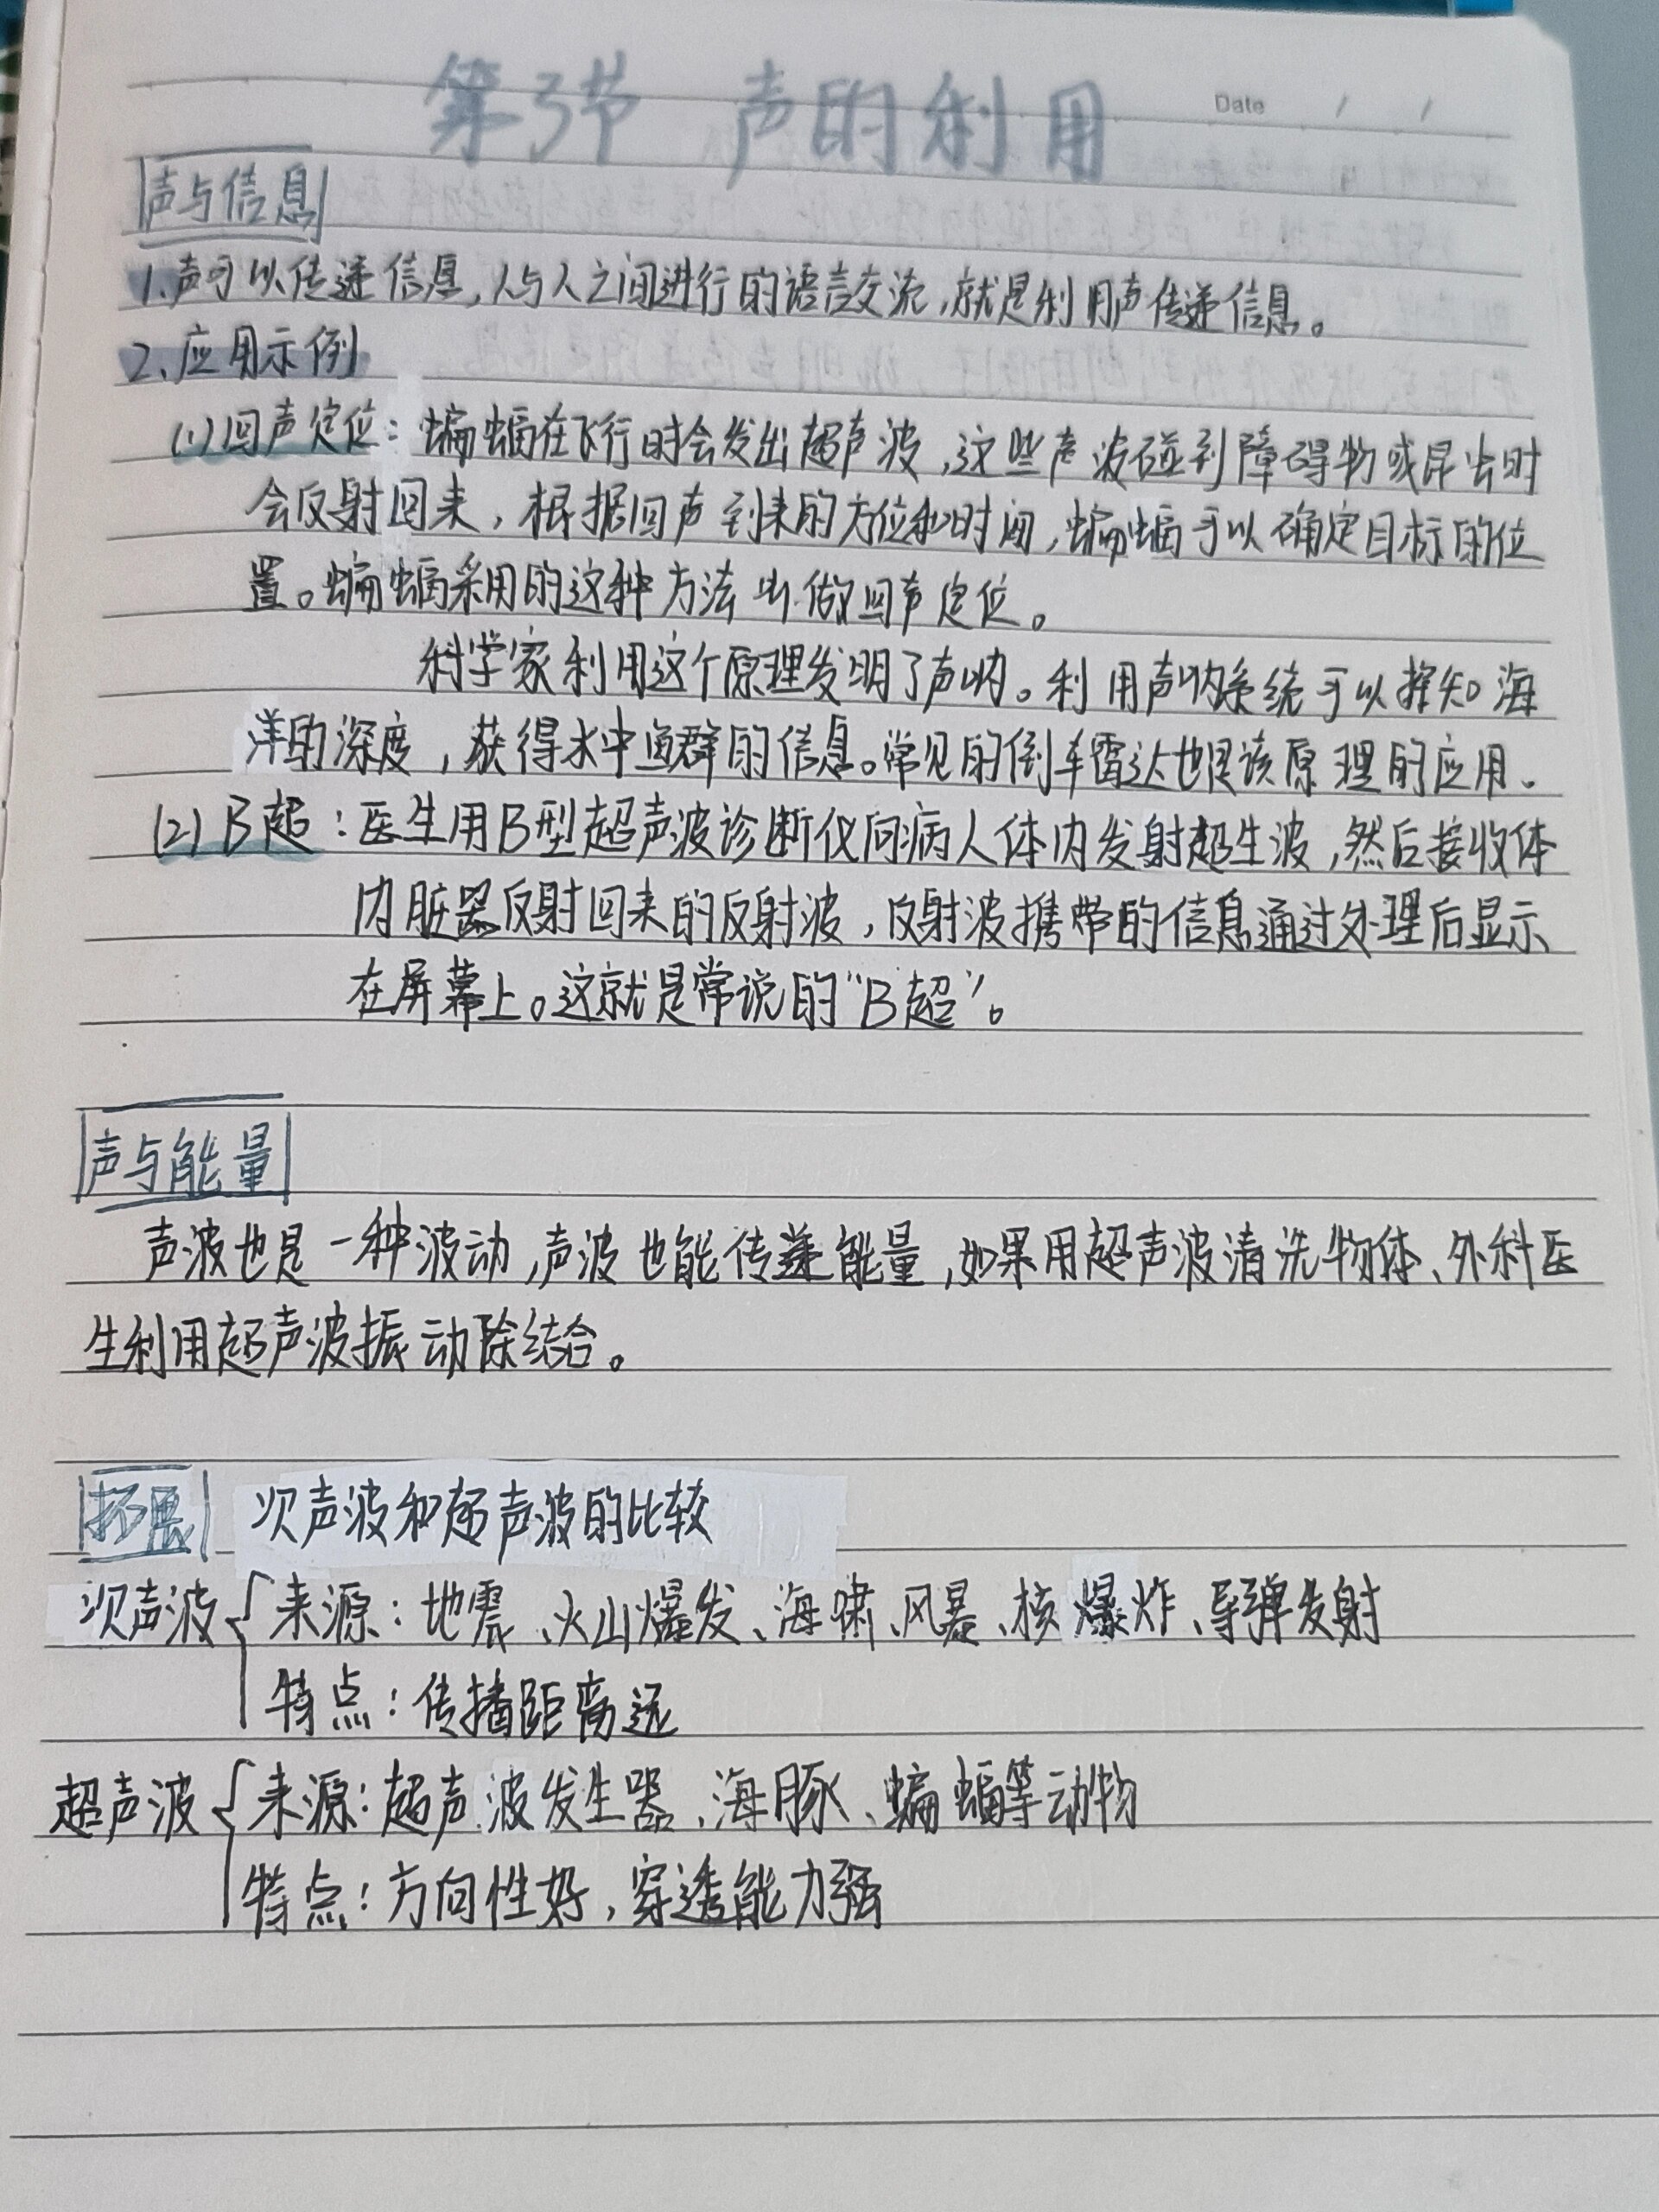 第3节 声的利用
Date / /
声与信息
1.声可以传递信息,人与人之间进行的语言交流,就是利用声传递信息。
2.应用示例
(1)回声定位:蝙蝠在飞行时会发出超声波,这些声波碰到障碍物或昆虫时
会反射回来,根据回声到来的方位和时间,蝙蝠可以确定目标的位
置。蝙蝠采用的这种方法叫做回声定位。
科学家利用这个原理发明了声呐。利用声呐系统可以探知海
洋的深度,获得水中鱼群的信息。常见的倒车雷达也是该原理的应用.
(2)B超:医生用B型超声波诊断仪向病人体内发射超生波,然后接收体
内脏器反射回来的反射波,反射波携带的信息通过处理后显示
在屏幕上。这就是常说的“B超”。
声与能量
声波也是一种波动,声波也能传递能量,如果用超声波清洗物体、外科医
生利用超声波振动除结合。
拓展 次声波和超声波的比较
次声波 来源:地震、火山爆发、海啸、风暴、核爆炸、导弹发射
特点:传播距离远
超声波 来源:超声波发生器、海豚、蝙蝠等动物
特点:方向性好,穿透能力强